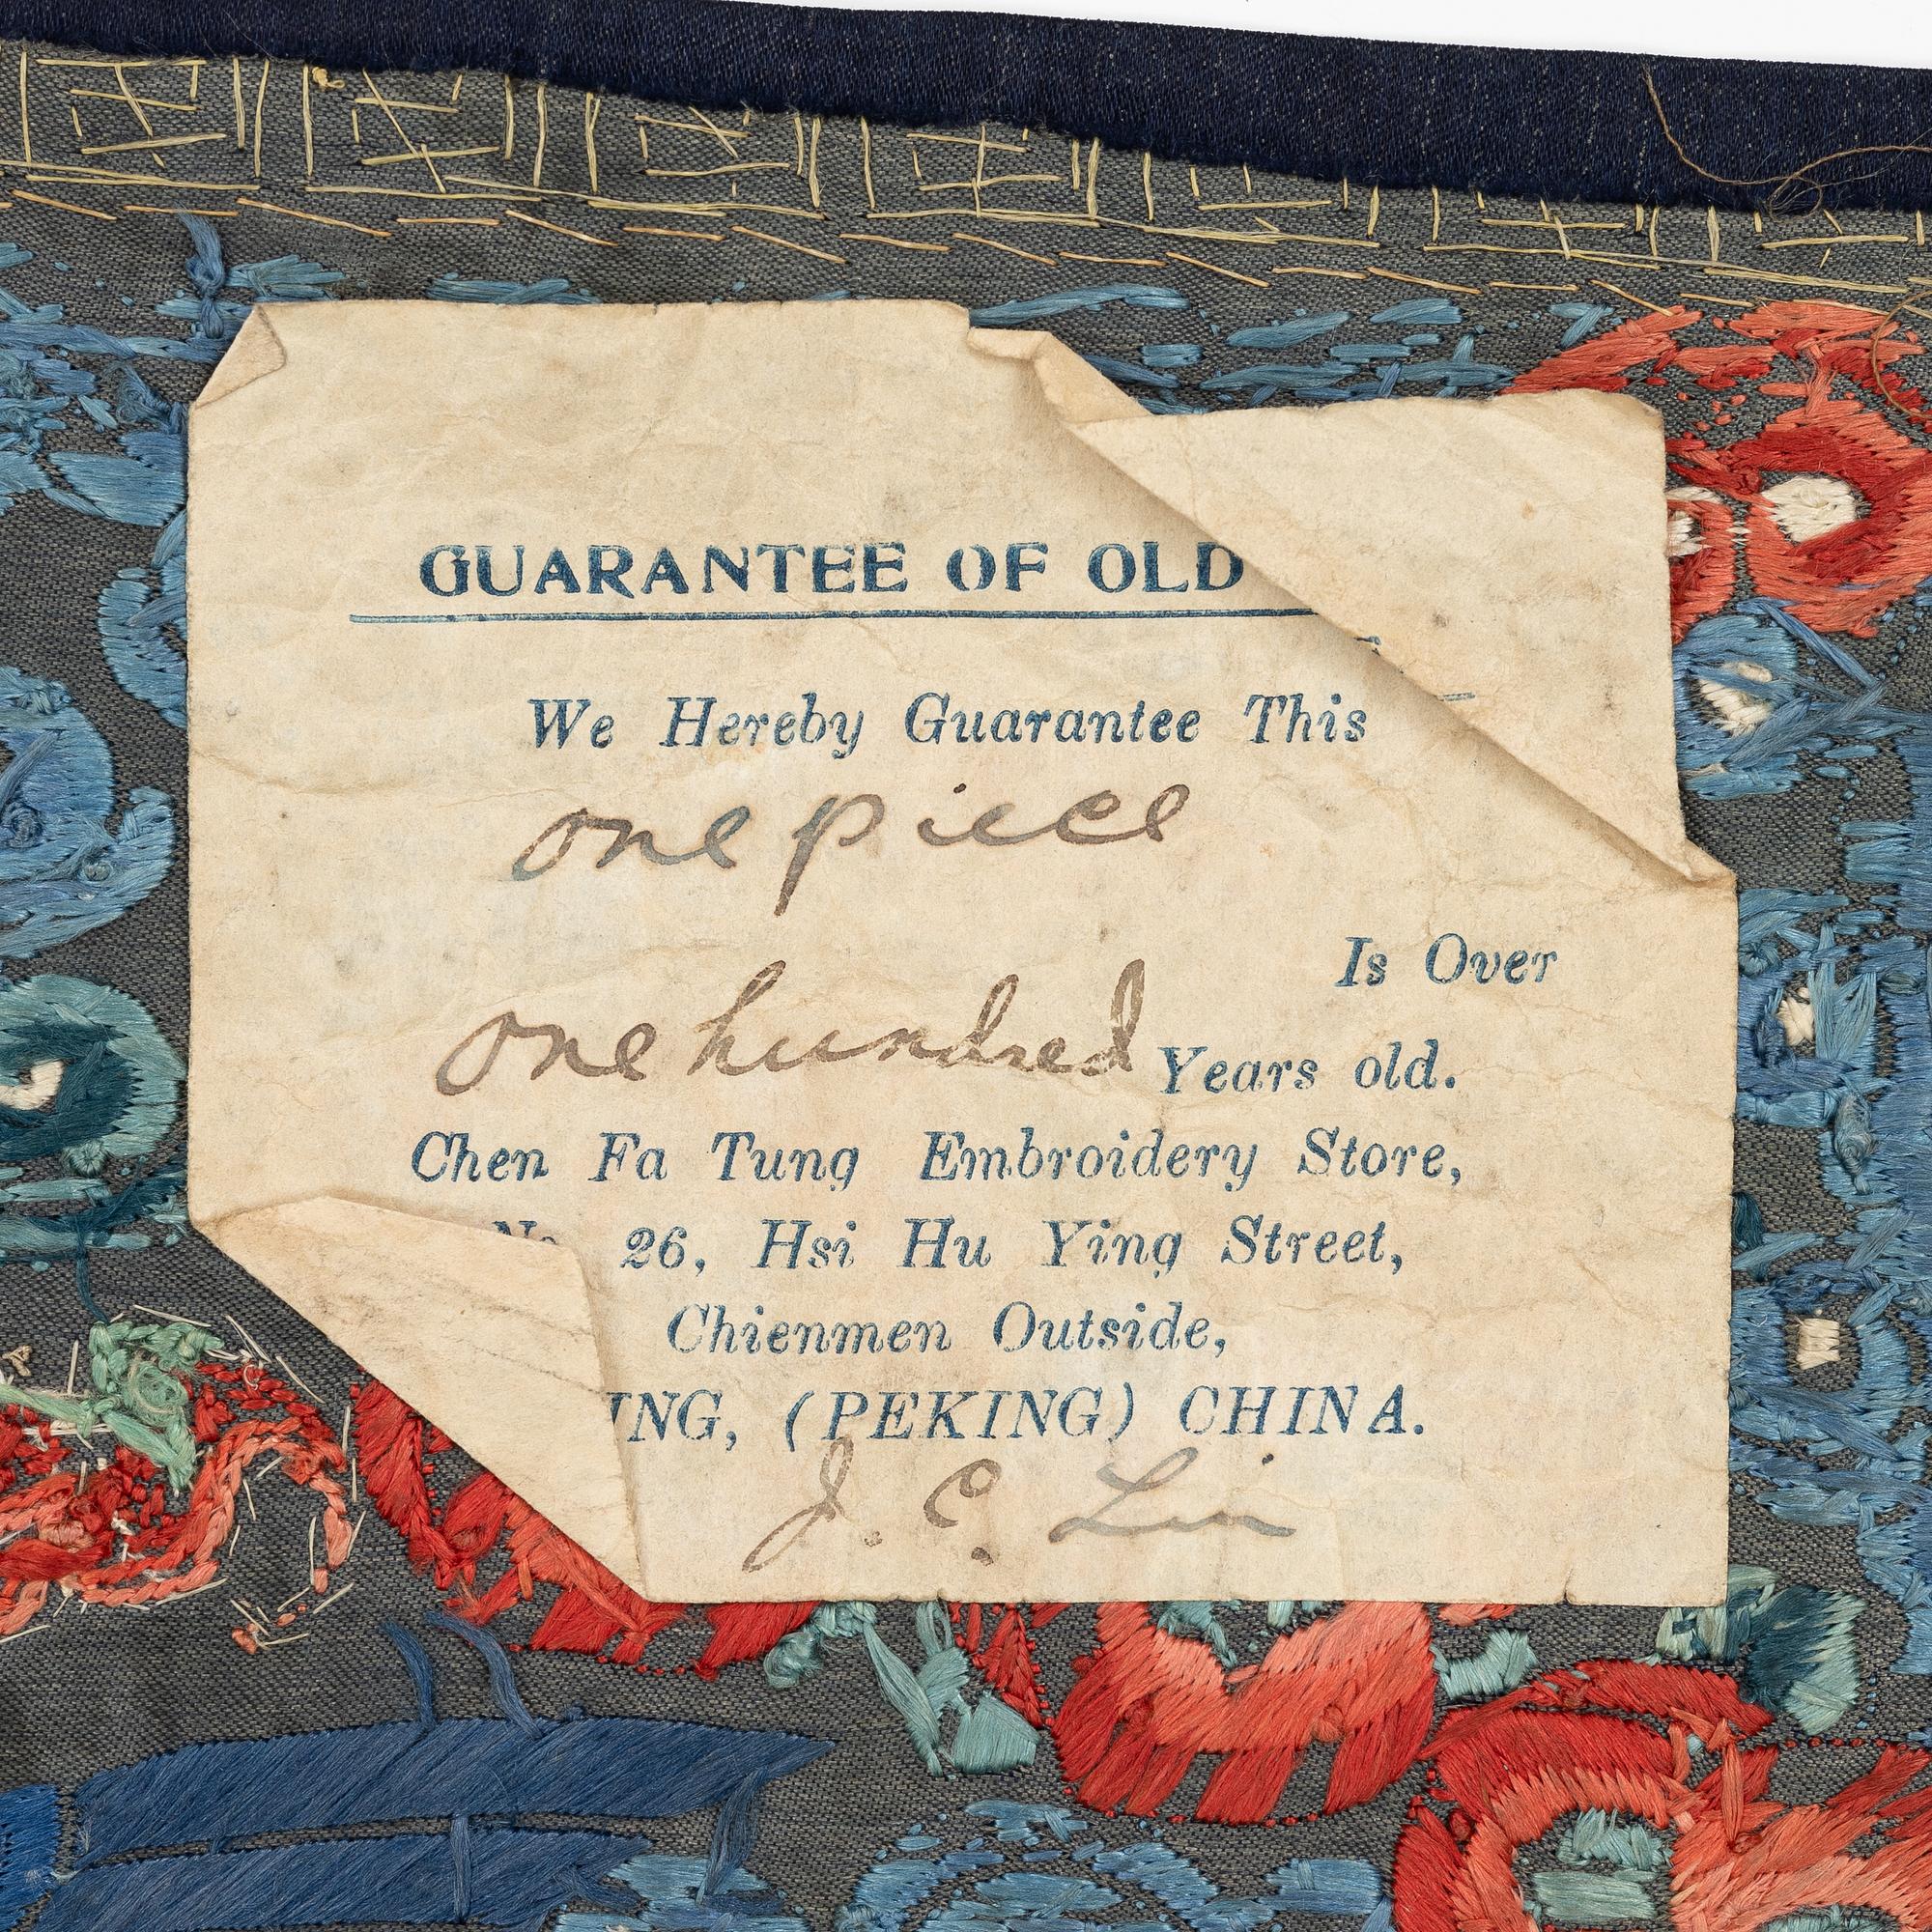 GUARANTEE OF OLD
We Hereby Guarantee This
one piece
Is Over
one hundred Years old.
Chen Fa Tung Embroidery Store,
No 26, Hsi Hu Ying Street,
Chienmen Outside,
ING, (PEKING) CHINA.
J. C. Lin